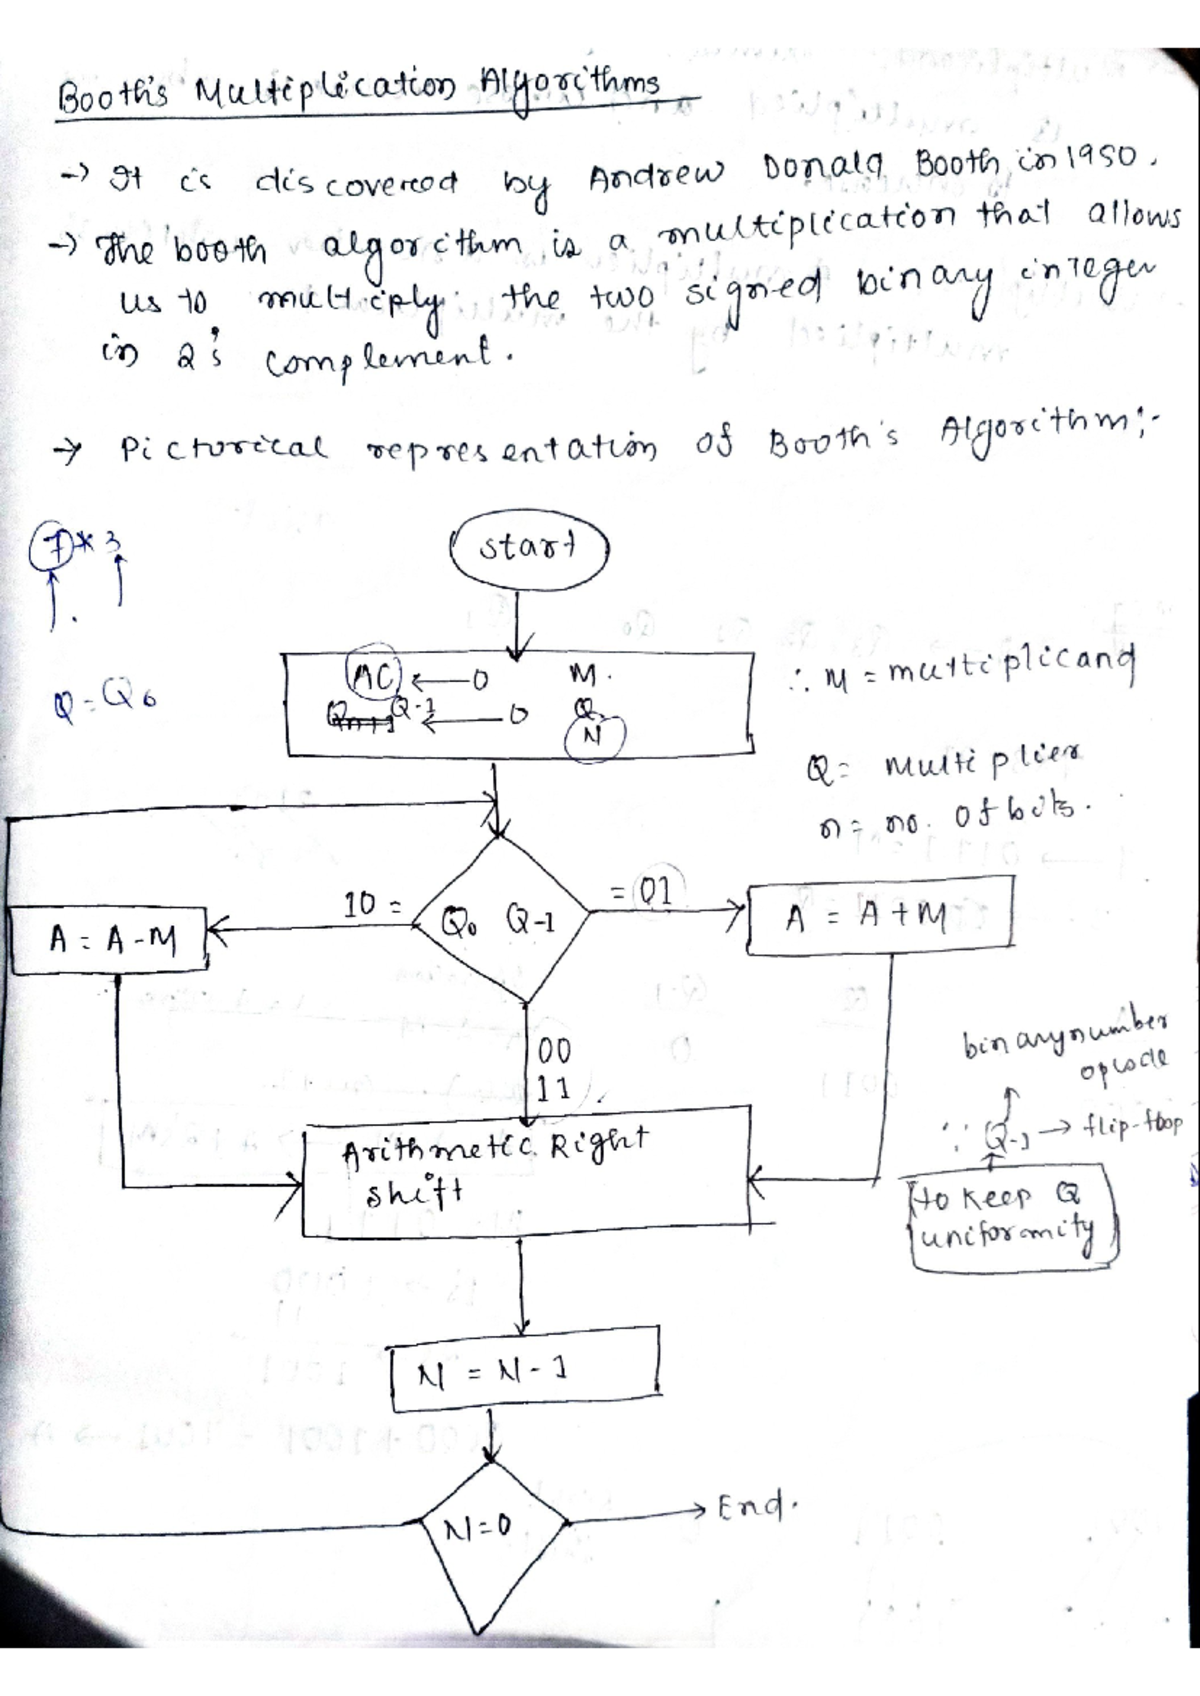 Booth's Multiplication Algorithms
→ It is discovered by Andrew Donald Booth in 1950.
→ The booth algorithm is a multiplication that allows
us to multiply the two signed binary integer
in 2's complement.
→ Pictorical representation of Booth's Algorithm:-
7 * 3
start
AC ← 0 M.
Q-1 ← 0 Q
N
Q = Q0
∴ M = multiplicand
Q = Multiplier
n = no. of bits.
10 =
= 01
A = A - M
Q0 Q-1
A = A + M
00
11
binary number
opcode
∵ Q-1 → flip-flop
to keep Q
uniformity
Arithmetic Right
shift
N = N - 1
N = 0
→ End.